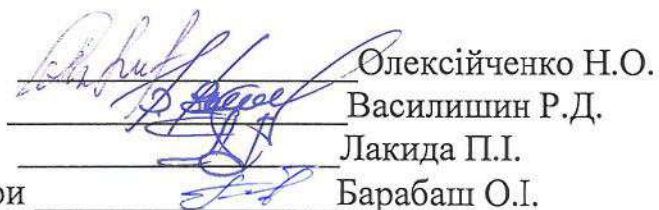 Олексійченко Н.О.
Василишин Р.Д.
Лакида П.І.
ри Барабаш О.І.